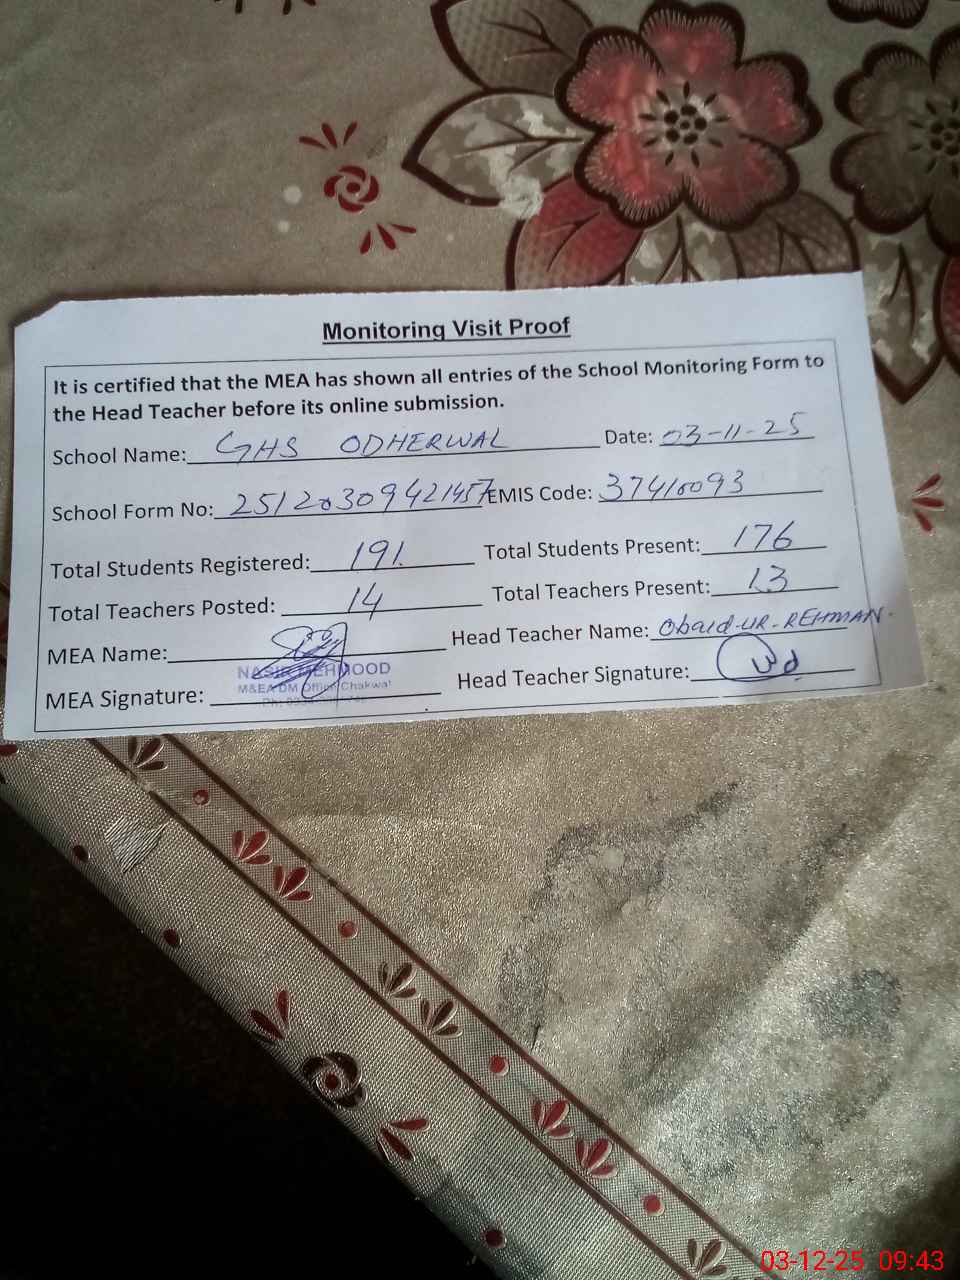 Monitoring Visit Proof
It is certified that the MEA has shown all entries of the School Monitoring Form to
the Head Teacher before its online submission.
School Name: GHS ODHERWAL Date: 03-11-25
School Form No: 25120309421457 EMIS Code: 37410093
Total Students Registered: 191 Total Students Present: 176
Total Teachers Posted: 14 Total Teachers Present: 13
MEA Name: Head Teacher Name: Obaid-UR-REHMAN.
NASIR MEHMOOD
MEA Signature: M&EA DM Office Chakwal Head Teacher Signature:
Ph:
03-12-25 09:43